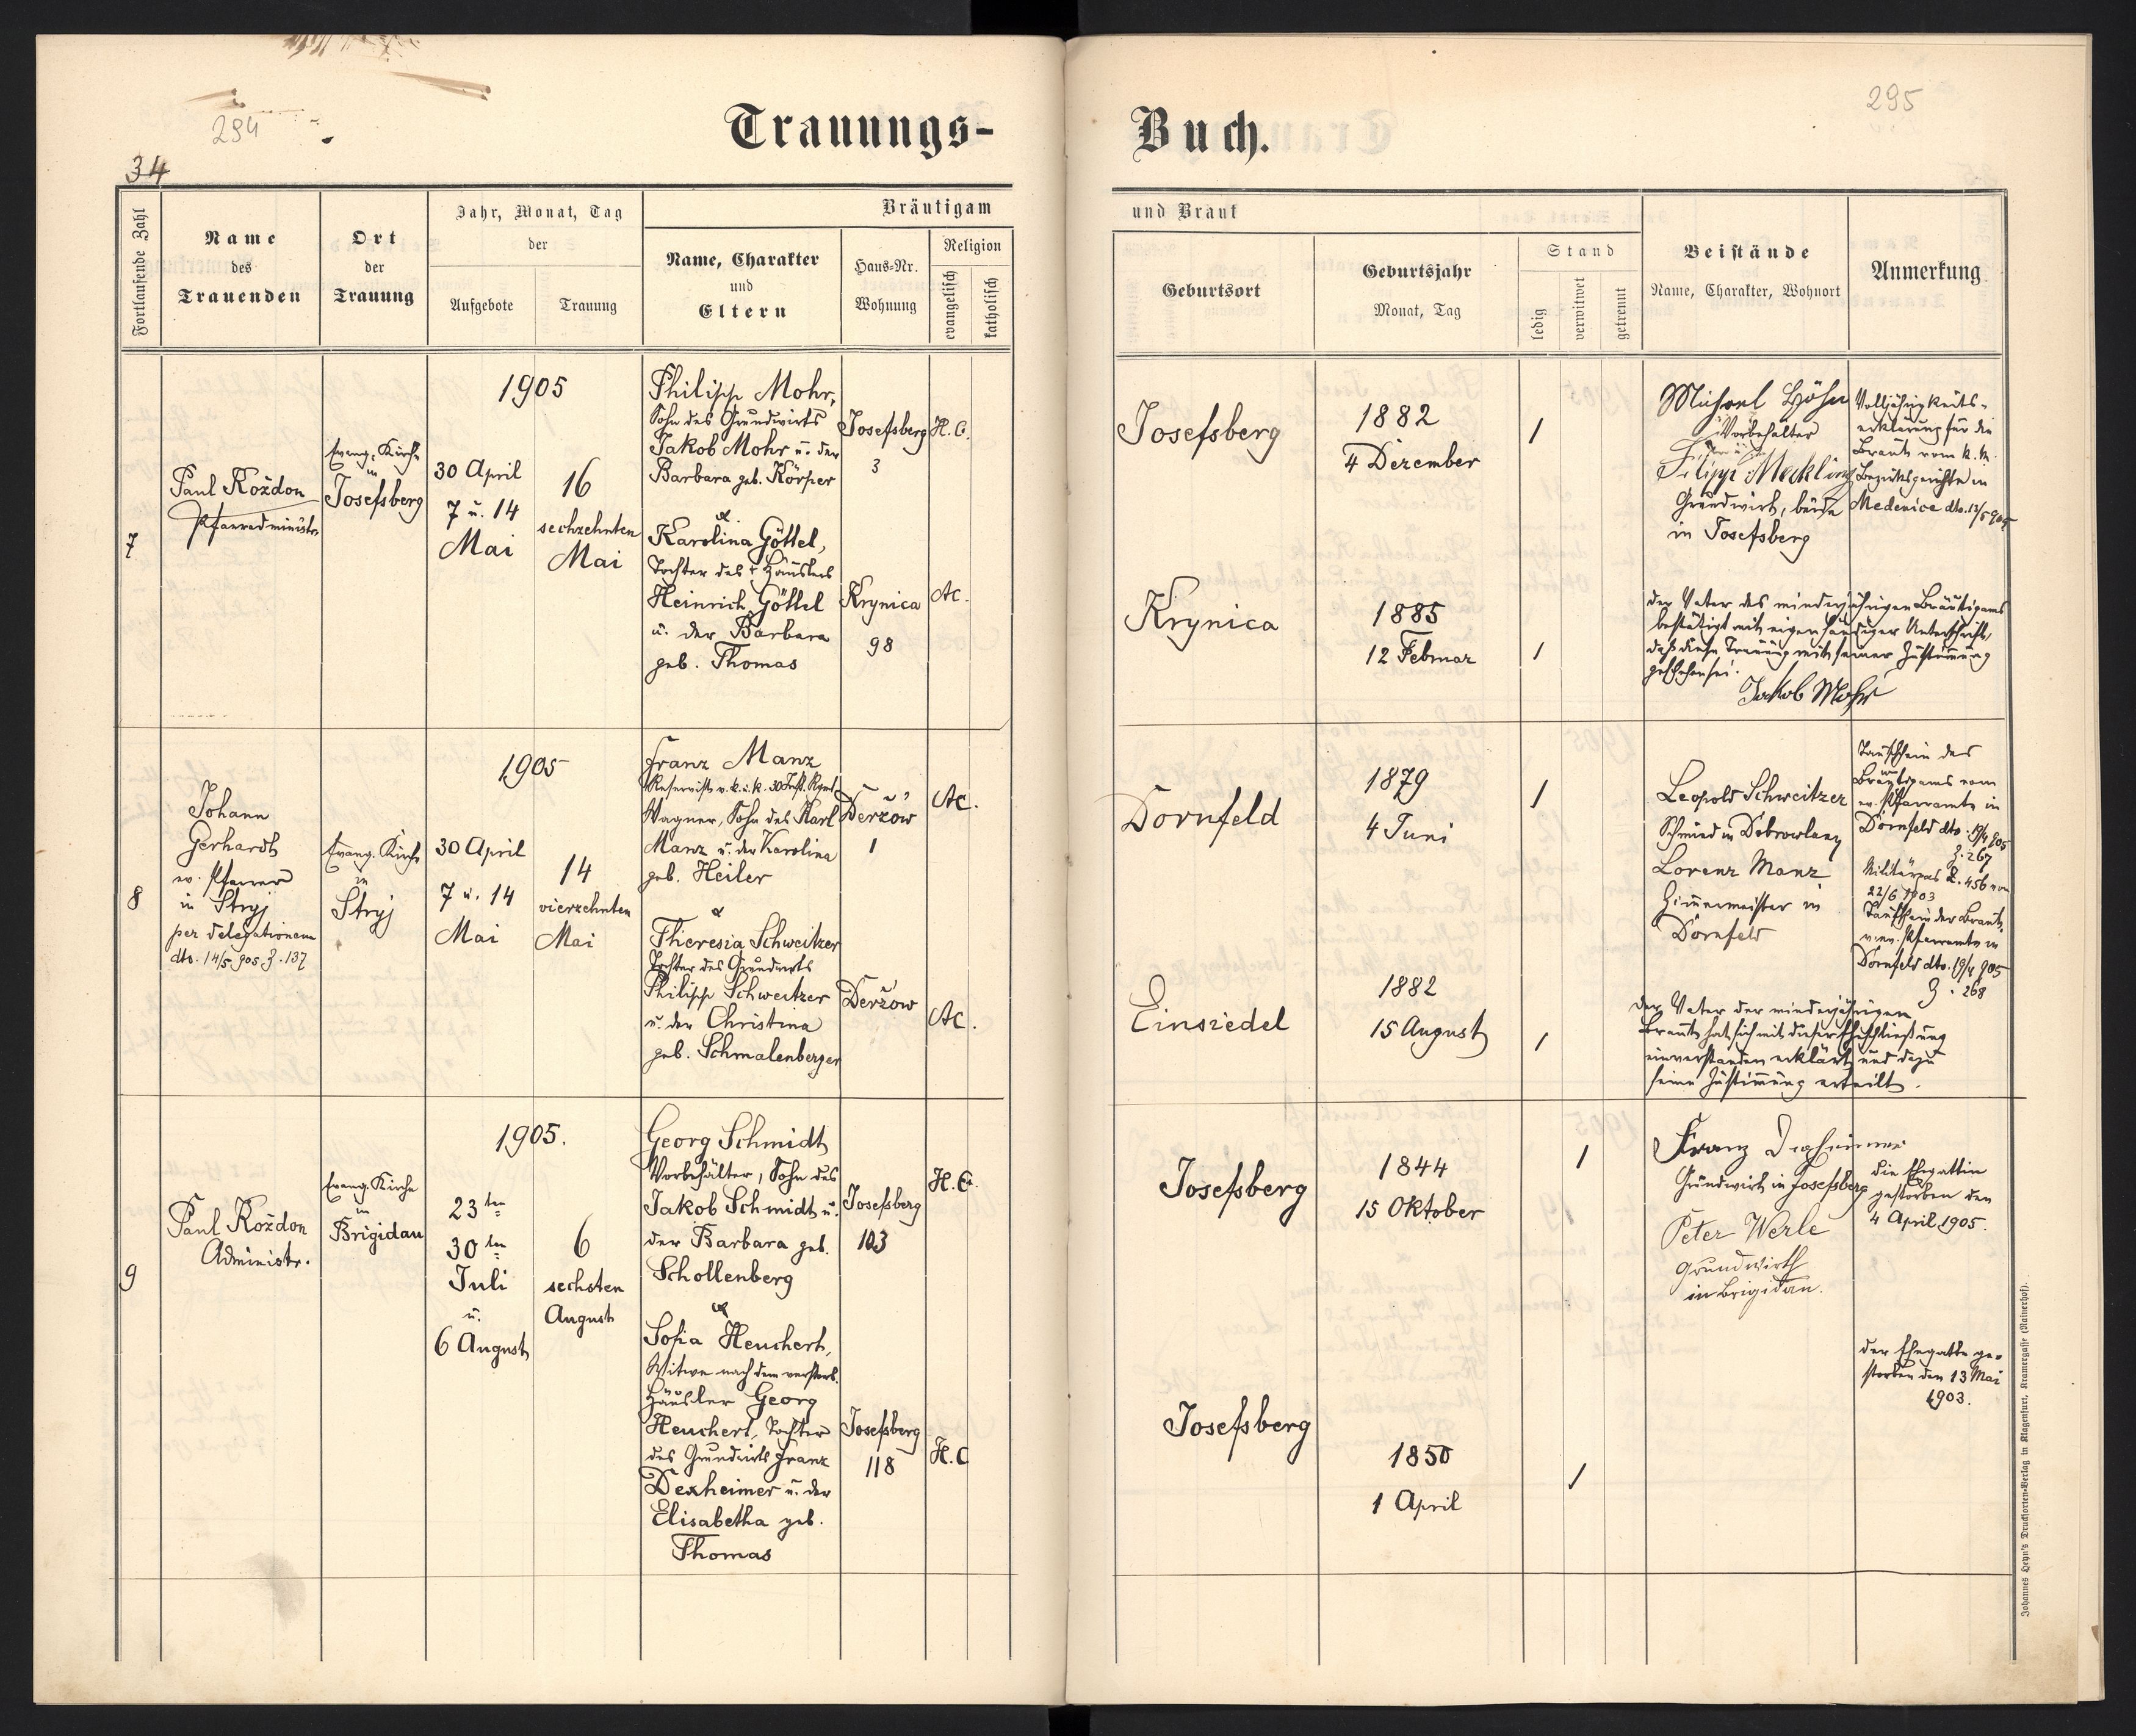 294
34
Trauungs-
Fortlaufende Zahl
Name
des
Trauenden
Ort
der
Trauung
Jahr, Monat, Tag
der
Aufgebote
Trauung
Bräutigam
Name, Charakter
und
Eltern
Haus-Nr.
Wohnung
Religion
evangelisch
katholisch
7
Paul Roždon
Pfarradministr.
Evang. Kirche
in
Josefsberg
1905
30 April
7 u. 14
Mai
16
sechzehnten
Mai
Philipp Mohr,
Sohn des Grundwirts
Jakob Mohr u. der
Barbara geb. Körper
&
Karolina Göttel,
Tochter des † Häuslers
Heinrich Göttel
u. der Barbara
geb. Thomas
Josefsberg
3
Krynica
98
H.C.
AC.
8
Johann
Gerhardt
ev. Pfarrer
in Stryj
per delegationem
dto. 14/5 905 Z. 137
Evang. Kirche
in
Stryj
1905
30 April
7 u. 14
Mai
14
vierzehnten
Mai
Franz Manz
Reservist v. k. u. k. 30 Inft. Rgmt.
Wagner, Sohn des Karl
Manz u. der Karolina
geb. Heiler
&
Theresia Schweitzer
Tochter des Grundwirts
Philipp Schweitzer
u. der Christina
geb. Schmalenberger
Deržów
1
Deržów
AC.
AC.
9
Paul Roždon
Administr.
Evang. Kirche
in
Brigidau
1905.
23ten
30ten
Juli
u.
6 August
6
sechsten
August
Georg Schmidt
Vorbehälter, Sohn des
Jakob Schmidt u.
der Barbara geb.
Schollenberg
&
Sofia Heuchert,
Witwe nach dem verstorb.
Häusler Georg
Heuchert, Tochter
des Grundwirts Franz
Dexheimer u. der
Elisabetha geb.
Thomas
Josefsberg
103
Josefsberg
118
H.C.
H.C
295
Buch.
und Braut
Geburtsort
Geburtsjahr
Monat, Tag
Stand
ledig
verwitwet
getrennt
Beistände
Name, Charakter, Wohnort
Anmerkung
Josefsberg
1882
4 Dezember
1
Michael Höhn
Vorbehälter
Filipp Mecklin
Grundwirt, beide
in Josefsberg
Volljährigkeits-
erklärung für die
Braut vom k. k.
Bezirksgerichte in
Medenice dto. 12/5 905
Krynica
1885
12 Februar
1
der Vater des minderjährigen Bräutigams
bestätigt mit eigenhändiger Unterschrift,
daß diese Trauung mit seiner Zustimmung
geschehen sei.
Jakob Mohr
Dornfeld
1879
4 Juni
1
Leopold Schweitzer
Schmied in Dobrowlany
Lorenz Manz
Zimmermeister in
Dornfeld
Taufschein des
Bräutigams vom
ev. Pfarramte in
Dornfeld dto. 19/4 905
Z. 267
Militärpas Z. 456 vom
22/6 1903
Taufschein der Braut,
v. ev. Pfarramte in
Dornfeld dto. 19/4 905
Z. 268
Einsiedel
1882
15 August
1
der Vater der minderjährigen
Braut hat sich mit dieser Eheschließung
einverstanden erklärt und dazu
seine Zustimmung erteilt.
Josefsberg
1844
15 Oktober
1
Franz Dexheimer
Grundwirt in Josefsberg
Peter Werle
Grundwirth
in Brigidau.
die Ehegattin
gestorben den
4 April 1905.
Josefsberg
1850
1 April
1
der Ehegatte ge-
storben den 13 Mai
1903.
Johannes Heyn's Drucksorten-Verlag in Klagenfurt, Kramergasse (Rainerhof).